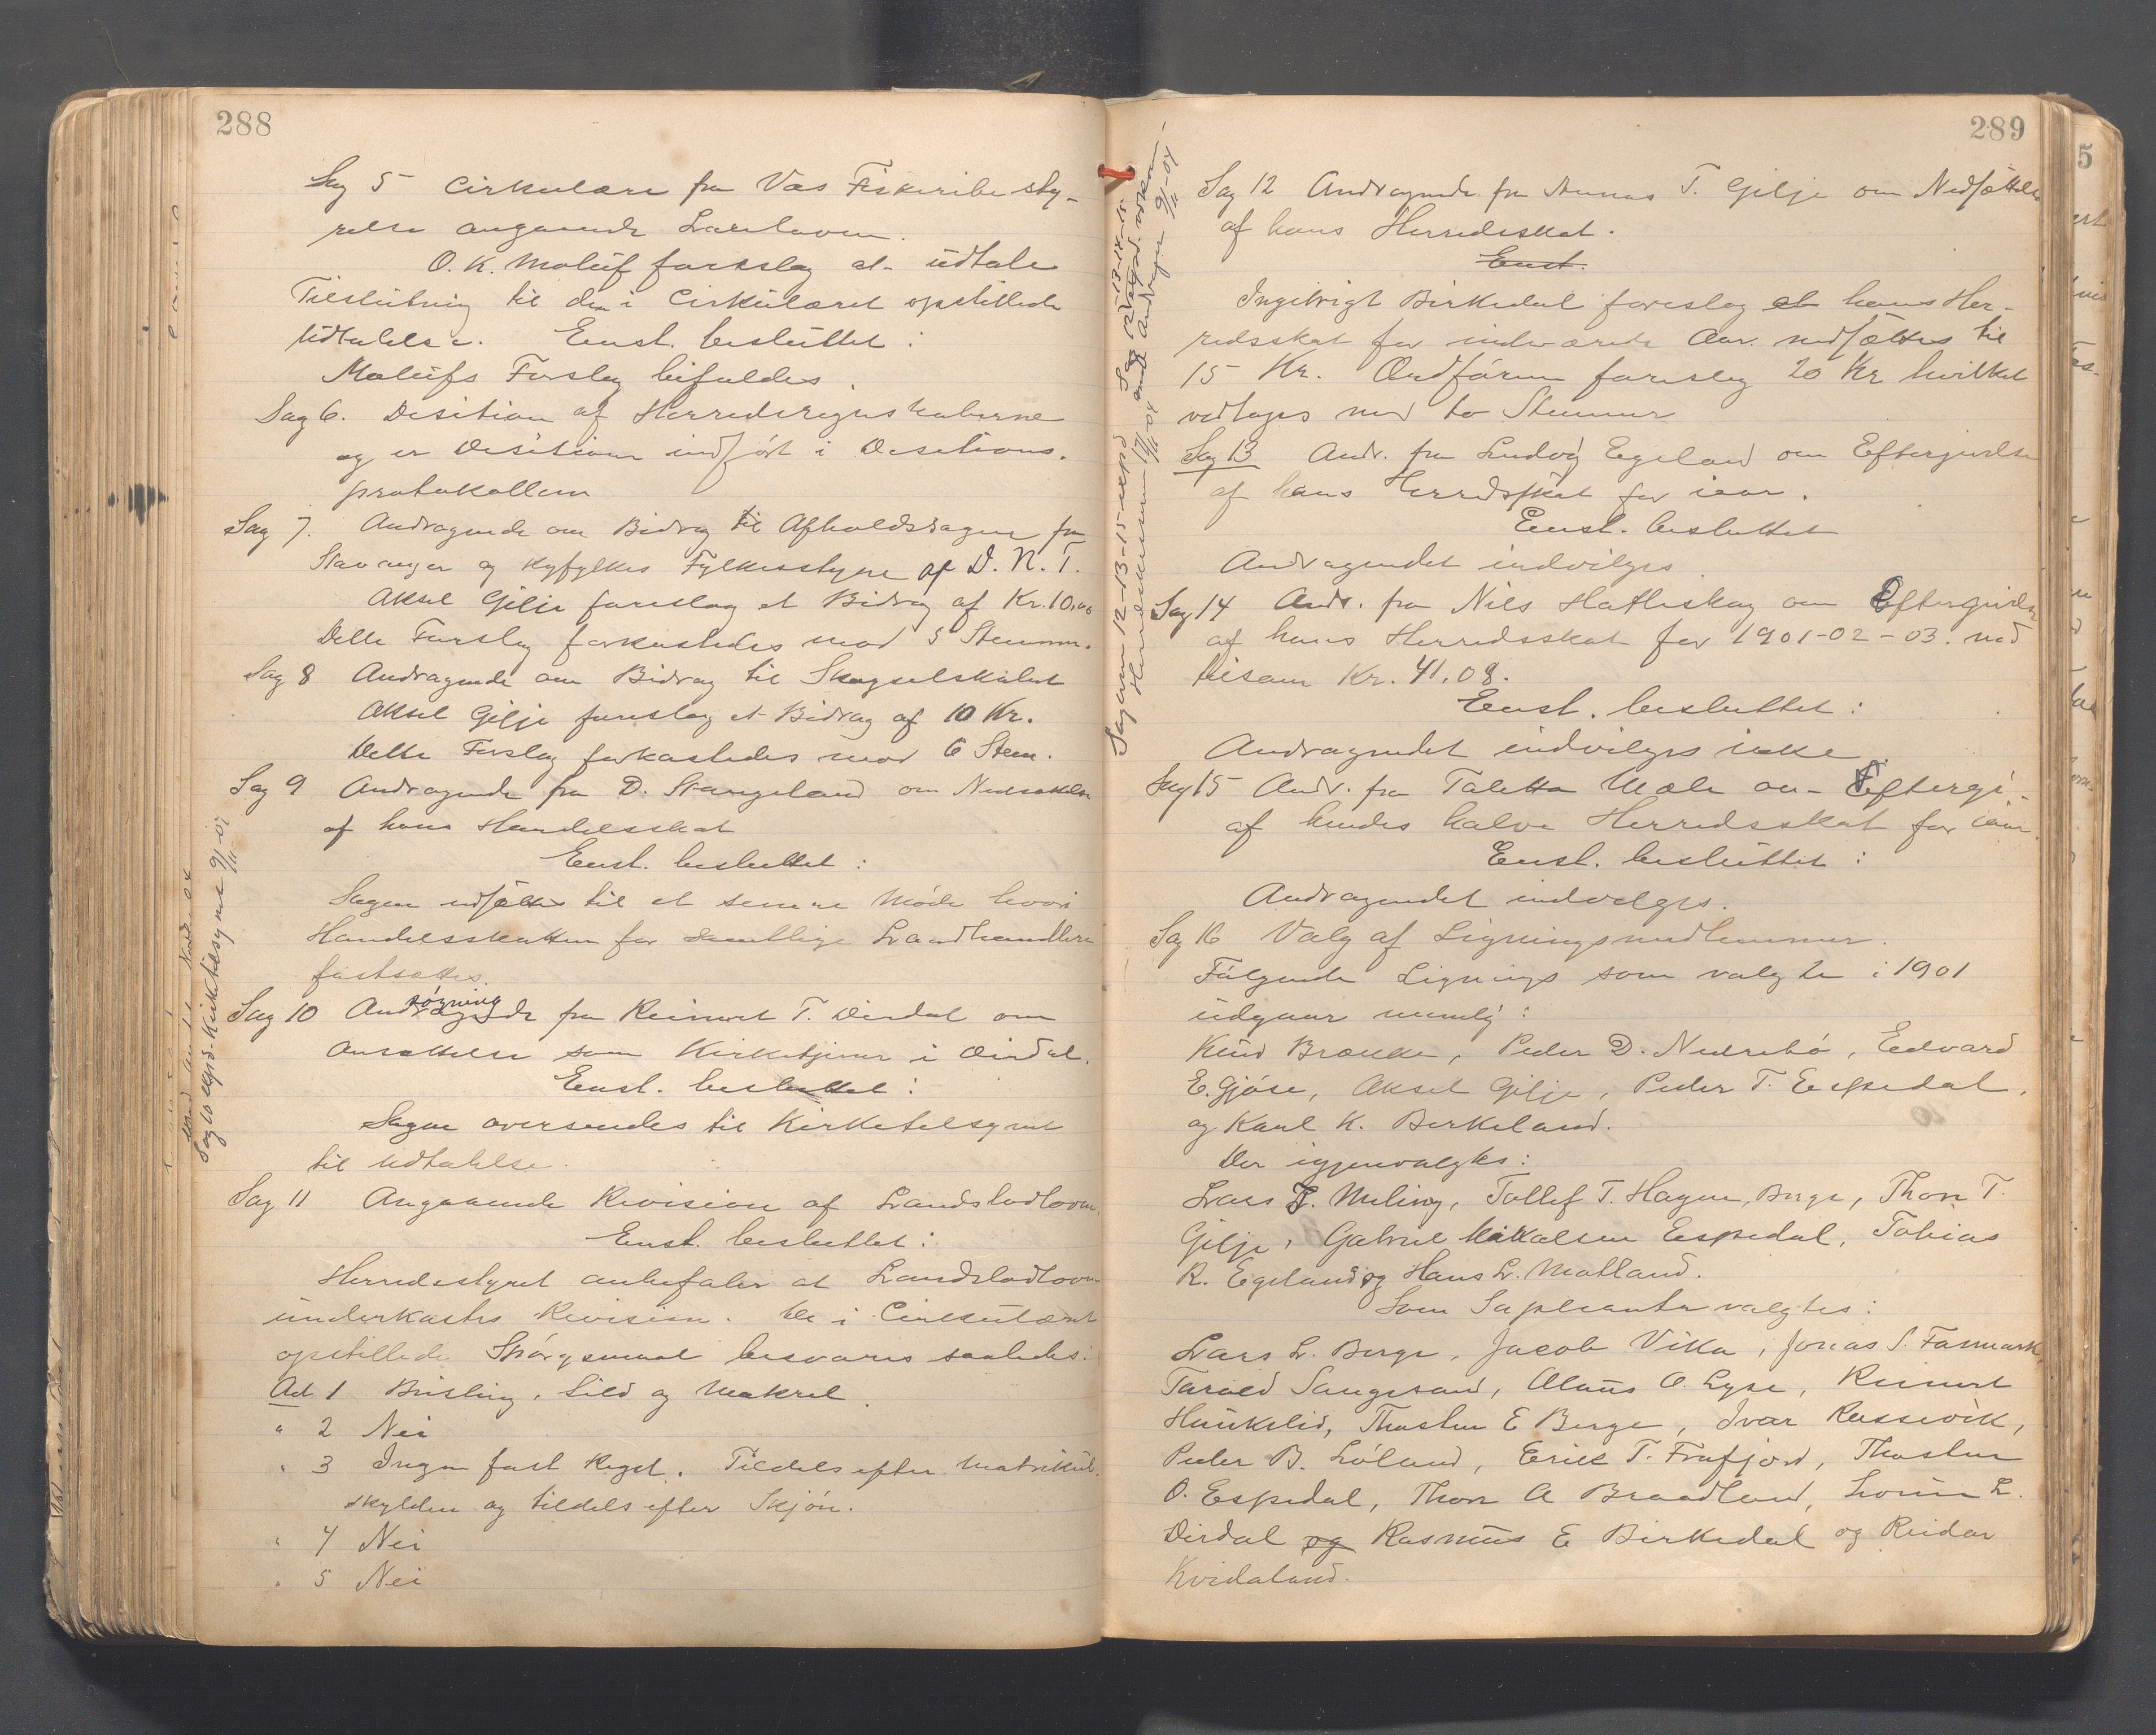 288
Sag 5 Cirkulære fra Vas Fiskeribesty-
relse angaaende Laxeloven.
O. K. Maluf foreslog at udtale
Tilslutning til den i Cirkulæret opstillede
Udtalelse. Enst. besluttet:
Malufs Forslag bifaldes.
Sag 6. Desition af Herredsregnskaberne
og er Desitionen indført i Desitions-
protokollen
Sag 7. Andragende om Bidrag til Afholdssagen fra
Stavanger og Ryfylkes Fylkesstyre af D. N. T.
Aksel Gilje foreslog et Bidrag af Kr. 10,00
Dette Forslag forkastedes mod 5 Stemmer.
Sag 8 Andragende om Bidrag til Skogselskabet
Aksel Gilje foreslog et Bidrag af 10 Kr.
Dette Forslag forkastedes mod 6 Stem.
Sag 9 Andragende fra D. Stangeland om Nedsættelse
af hans Handelsskat
Enst. besluttet:
Sagen udsættes til et senere Møde hvori
Handelsskatten for samtlige Landhandlere
fastsættes.
Sag 10 Andragende søgning fra Reinert T. Dirdal om
Ansættelse som Kirketjener i Dirdal.
Enst. besluttet:
Sagen oversendes til Kirketilsynet
til Udtalelse.
Sag 11 Angaaende Revision af Landslodloven.
Enst. besluttet:
Herredsstyret anbefaler at Landslodloven
underkastes Revision. De i Cirkulæret
opstillede Spørgsmaal besvares saaledes:
Ad 1 Brisling, Sild og Makrel.
" 2 Nei
" 3 Ingen fast Regel. Tildels efter Matrikul-
skylden og tildels efter Skjøn.
" 4 Nei
" 5 Nei
Sag 10 exp. Kirketilsynet 9/11-04
289
Sag 12 Andragende fra T. Gilje om Nedsættelse
af hans Herredsskat.
Enst.
Ingebrigt Birkedal foreslog at hans Her-
redsskat for indeværende Aar nedsættes til
15 Kr. Ordføreren foreslog 20 Kr hvilket
vedtoges mod to Stemmer
Sag 13 Andr. fra Ludvig Egeland om Eftergivelse
af hans Herredsskat for iaar.
Enst. besluttet
Andragendet indvilges.
Sag 14 Andr. fra Nils Hatleskog om Eftergivelse
af hans Herredsskat for 1901-02-03. med
tilsam Kr. 41,08.
Enst. besluttet:
Andragendet indvilges ikke.
Sag 15 Andr. fra Taletta Mæle om Eftergi-
af hendes halve Herredsskat for iaar.
Enst. besluttet:
Andragendet indvilges.
Sag 16 Valg af Ligningsmedlemmer.
Følgende Lignings som valgte i 1901
udgaar nemlig:
Knud Brække, Peder D. Nedrebø, Edvard
E. Gjøse, Aksel Gilje, Peder T. Espedal,
og Karl K. Birkeland.
Der igjenvalgtes:
Lars T. Meling, Tollef T. Hagen, Berge, Thore T.
Gilje, Gabriel Mikkalsen Espedal, Tobias
R. Egeland og Hans L. Matland.
Som Supleanter valgtes:
Lars L. Berge, Jacob Vika, Jonas S. Fasmark,
Tarald Sangesand, Olaus O. Lyse, Reinert
Haukelid, Thosten E Berge, Ivar Rossevik,
Peder B. Løland, Erik T. Frafjord, Thosten
O. Espedal, Thore A Braadland, L.
Dirdal og Rasmus E Birkedal og Reidar
Kvidaland.